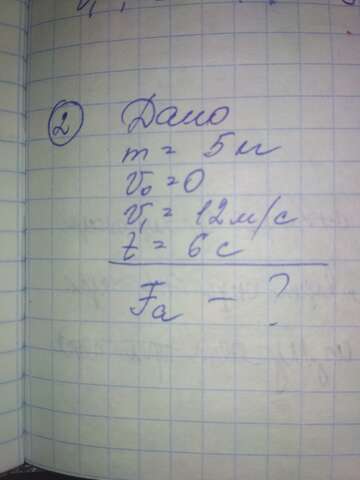 2 Дано
m = 5 кг
V₀ = 0
V₁ = 12 м/с
t = 6 с
Fa - ?